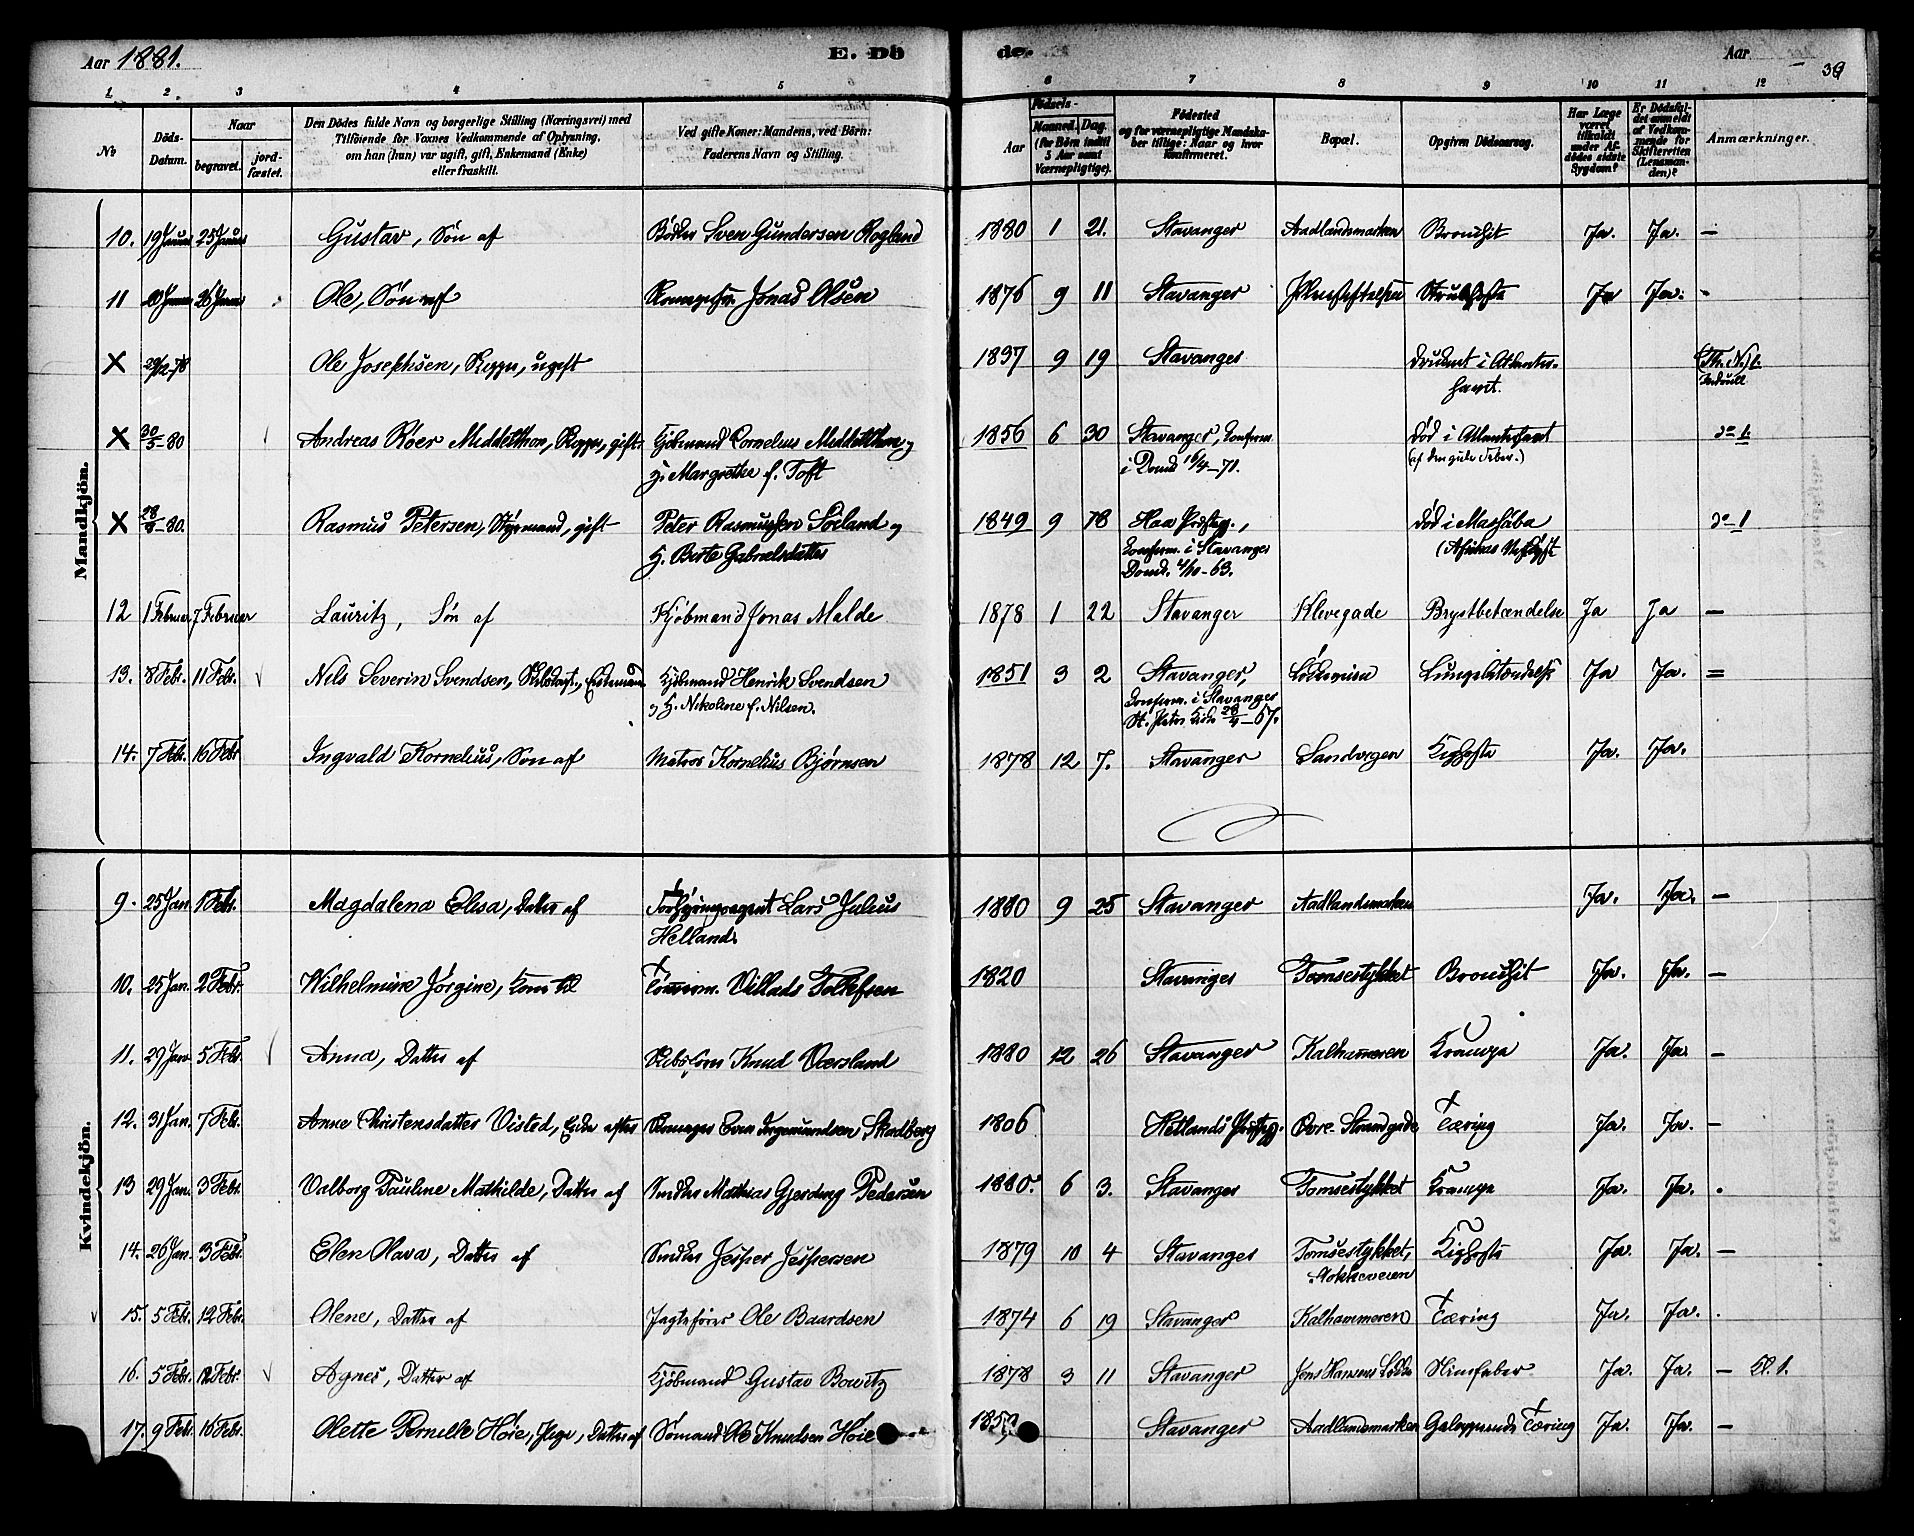 Aar 1881. E. Dö de. Aar 39
1 2 3 4 5 6 7 8 9 10 11 12
№ Döds-Datum. Naar begravet. jord-fæstet. Den Dödes fulde Navn og borgerlige Stilling (Næringsvei) med Tilföiende for Voxnes Vedkommende af Oplysning, om han (hun) var ugift, gift, Enkemand (Enke) eller fraskilt. Ved gifte Koner: Mandens, ved Börn: Faderens Navn og Stilling. Födsels- Aar Maaned. Dag. (for Börn indtil 5 Aar samt Værnepligtige). Födested og for værnepligtige Mandskaber tillige: Naar og hvor Konfirmeret. Bopæl. Opgiven Dödsaarsag. Har Læge været tilkaldt under Afdödes sidste Sygdom? Er Dödsfaldet anmeldt af Vedkommende for Skifteretten (Lensmanden)? Anmærkninger.
Mandkjön.
10. 19 Januar 25 Januar Gustav, Søn af Bødker Sven Gundersen Rogland 1880 1 21. Stavanger Aadlandsmarken Bronchit Ja. Ja. —
11 20 Januar 26 Januar Ole, Søn af Jonas Olsen 1876 9 11 Stavanger Strubehoste Ja Ja. -
X 29/12-78 Ole Josephsen, ugift 1837 9 19 Stavanger Druknet i Atlanterhavet. (Th. N.) l.
X 30/5-80 Andreas Köer Middelthon, gift Kjøbmand Cornelius Middelthon og
H. Margrethe f. Toft 1856 6 30 Stavanger, Konfirm. i Domk 16/4-71. Død i Atlanterhavet
(af den gule Feber.) do l.
X 28/8-80. Rasmus Petersen, Styrmand, gift Peter Rasmussen Soiland og
H. Berte Gabrielsdatter 1849 9 18 Haa Præstegj.,
Konfirm. i Stavanger
Domk. 4/10-63. Død i Massaba
(Afrikas Vestkyst do 1
12 1 Februar 7 Februar Lauritz, Søn af Kjøbmand Jonas Malde 1878 1 22 Stavanger Klevegade Brystbetændelse Ja Ja —
13. 8 Febr. 11 Febr. Nils Severin Svendsen, Enkemand Kjøbmand Henrik Svendsen
og H. Nikoline f. Nilsen. 1851 3 2 Stavanger,
Konfirm. i Stavanger
St. Petri Kirke 28/4-67. Lungebetændelse Ja Ja. =
14. 7 Febr. 16 Febr Ingvald Kornelius, Søn af Matros Kornelius Bjørnsen 1878 12 7. Stavanger Sandvigen Kighoste Ja. Ja.
Kvindekjön.
9. 25 Jan. 1 Febr. Magdalena Elisa, Datter af Lars Julius
Helland 1880 9 25 Stavanger Aadlandsmarken Ja. Ja. —
10. 25 Jan. 2 Febr. Wilhelmine Jörgine, Kone til Tømmerm. Villads Tollefsen 1820 Stavanger Tomsestykket Bronchit Ja. Ja. —
11. 29 Jan 5 Febr. Anna, Datter af KnudVærsland 1880 12 26 Stavanger Kalhammeren Krampe Ja. Ja —
12. 31 Jan. 7 Febr. Anne Christensdatter Visted, Enke efter Sven Ingemundsen Skadberg 1806 Hetlands Præstegj. Øvre Strandgade Tæring Ja. Ja. —
13 29 Jan. 3 Febr. Valborg Pauline Mathilde, Datter af Snedker Mathias Gjerding Pedersen 1880. 6 3. Stavanger Tomsestykket Krampe Ja. Ja. .
14. 26 Jan. 3 Febr. Elen Olava, Datter af Snedker Jesper Jespersen 1879 10 4 Stavanger Tomsestykket,
Mokkeveien Kighoste Ja. Ja. —
15. 5 Febr. 12 Febr. Olene, Datter af Jagtefører Ole Baardsen 1874 6 19 Stavanger Kalhammeren Tæring Ja. Ja. .
16. 5 Febr. 12 Febr. Agnes, Datter af Kjøbmand Gustav Bowitz 1878 3 11 Stavanger Jens Hansens Lökke Ja. Ja. — Kl. 1.
17. 9 Febr. 16 Febr. Olette Pernille Höie, Pige, Datter af Sømand Ole Knudsen Höie 1859 Stavanger Aadlandsmarken Galopperende Tæring Ja. Ja. —